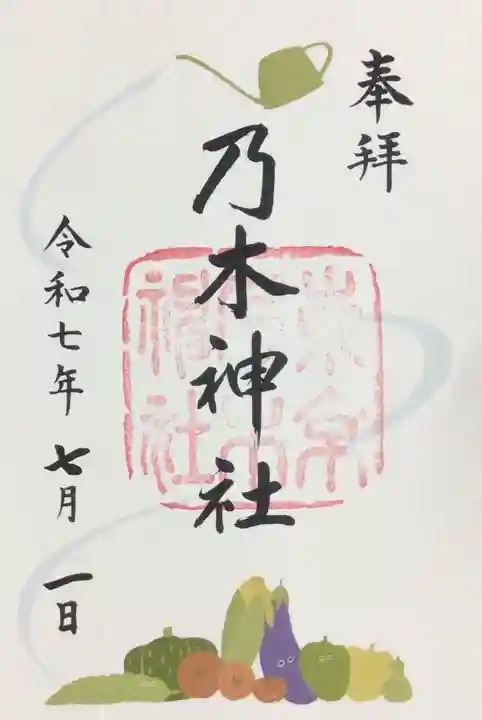 奉拝
乃木神社
令和七年七月一日